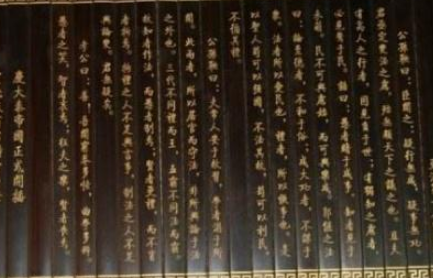 公孫鞅曰：臣聞之：疑行無成，疑事無功
君亟定變法之慮，殆無顧天下之議之也。且夫
有高人之行者，固見負于世；有獨知之慮者，
必見驁于民。語曰：愚者闇于成事，知者見于
未萌。民不可與慮始，而可與樂成。郭偃之法
曰：論至德者，不和于俗；成大功者，不謀于
衆。法者所以愛民也，禮者，所以便事也。是
以聖人苟可以強國，不法其故，苟可以利民，
不循其禮。
公孫鞅曰：夫常人安于故習，學者溺于所
聞。此兩者，所以居官而守法，非所與論于法
之外也。三代不同禮而王，五霸不同法而霸。
故知者作法，而愚者制焉；賢者更禮，而不肖
者拘焉。拘禮之人不足與言事，制法之人不足
與論變。君無疑矣。
孝公曰：善！吾聞窮巷多怪，曲學多辯。
愚者之笑，知者哀焉；狂夫之樂，賢者喪焉。
慶大秦帝國正式開播